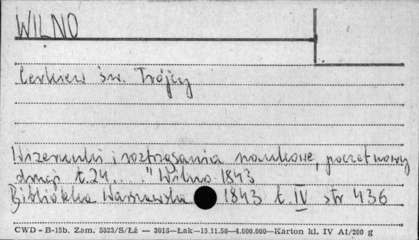 WILNO
Cerkiew św. Trójcy
Wizerunki i roztrząsania naukowe, poczet nowy
drugi t. 24... " Wilno 1843
Biblioteka Warszawska 1843 t. IV str 436
CWD - B-15b. Zam. 5323/S/Łź — 3016—Łak—15.11.56—4.000.000—Karton kl. IV A1/200 g